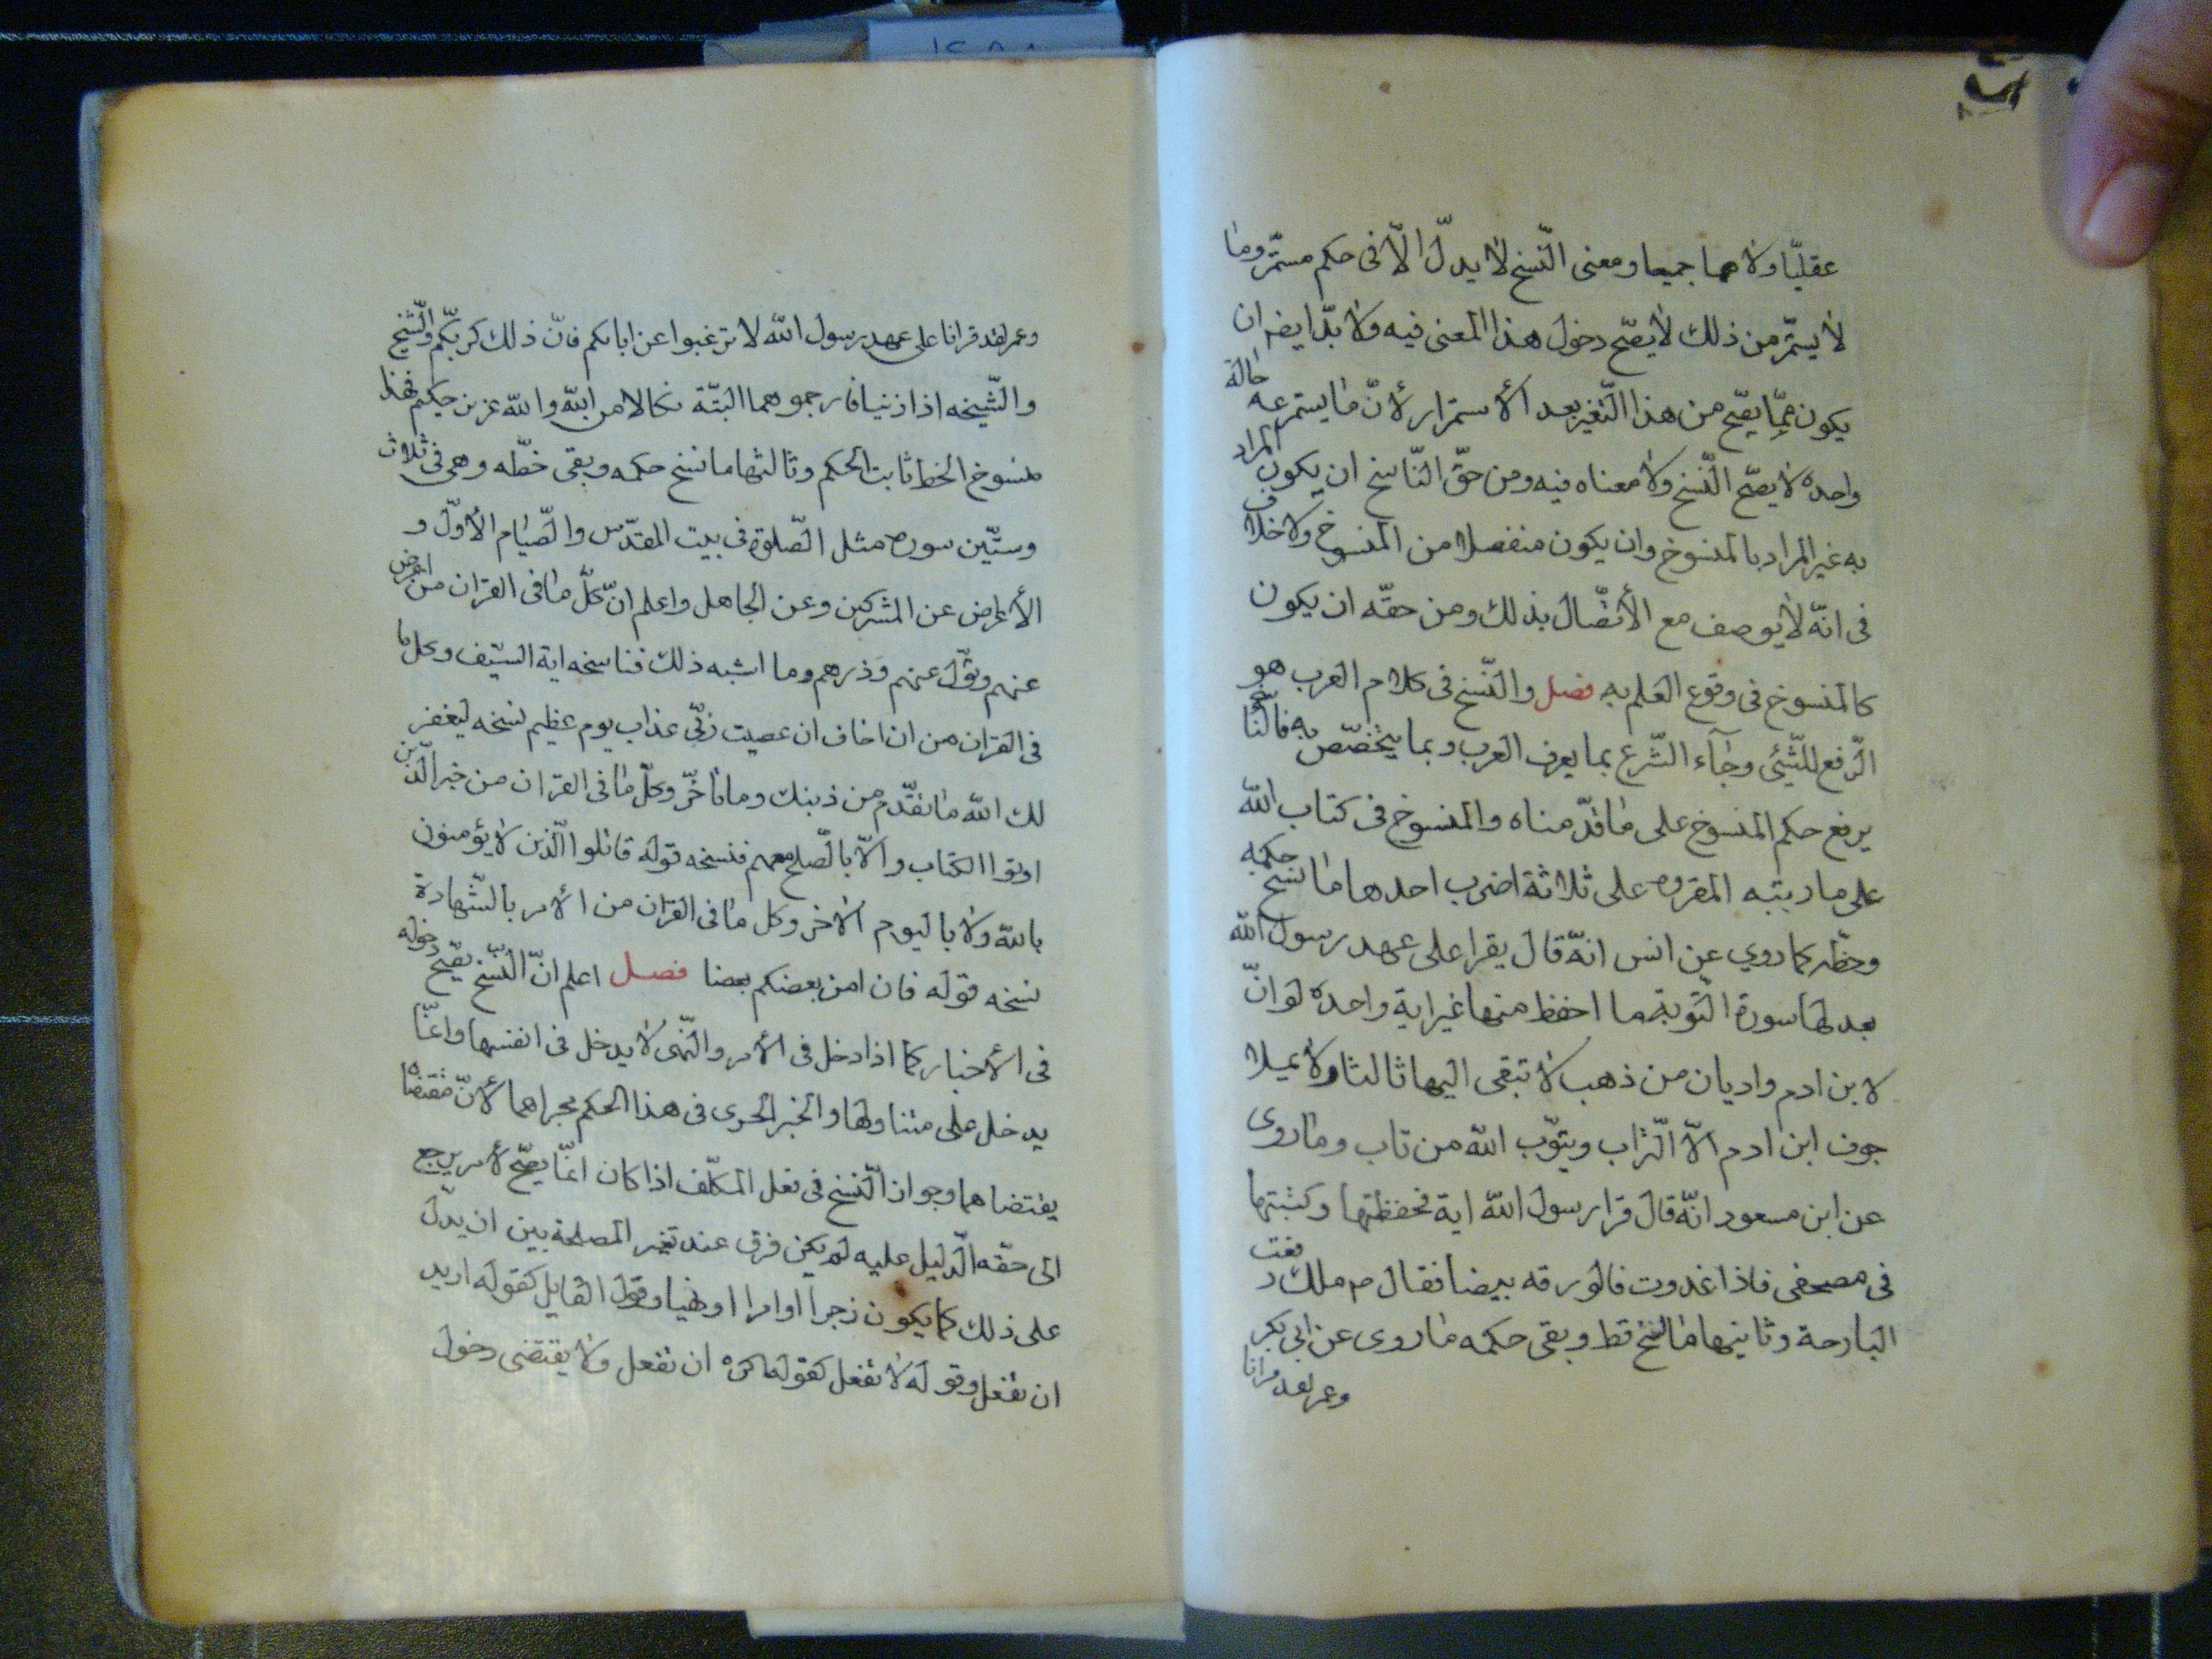 عقليّا ولاهما جميعا ومعنى النّسخ لا يدلّ الّا فى حكم مستمرّ وما
لا يستمّر من ذلك لا يصّح دخول هذا المعنى فيه ولا بدّ ايضا ان
يكون ممّا يصّح من هذا التّغير بعد الأستمرار لأنّ ما يستمر عه حالة
واحده لا يصّح النّسخ ولا معناه فيه ومن حقّ النّاسخ ان يكون المراد
به غير المراد بالمنسوخ وان يكون منفصلا من المنسوخ ولا خلاف
فى انّه لا يوصف مع الأتّصال بذلك ومن حقّه ان يكون
كالمنسوخ فى وقوع العلم به فصل والنّسخ فى كلام العرب هو
الرّفع للشّئى وجآء الشّرع بما يعرف العرب وبما يتخصّص به فالنّاسخ
يرفع حكم المنسوخ على ما قدّمناه والمنسوخ فى كتاب الله
على ما ريتبه المقروه على ثلاثة اضرب احدها ما نسخ حكمه
وخطّه كما روي عن انس انّه قال يقرا على عهد رسول الله
بعد لها سورة التّوبة ما احفظ منها غير اية واحده لو انّ
لابن ادم واديان من ذهب لا تبقى اليها ثالثا ولا يملا
جوف ابن ادم الّا التّراب ويتوّب الله من تاب وما روى
عن ابن مسعود انّه قال قرا رسول الله اية فحفظتها وكتبتها
فى مصحفى فاذا غدوت فالورقه بيضا فقال م ملك رفعت
البارحة وثانيها ما نسخ قط وبقى حكمه ما روى عن ابى بكر
وعمر لقد قرانا
وعمر لقد قرانا على عهد رسول الله لا ترغبوا عن ابائكم فانّ ذلك كربكّم والشّيخ
والشّيخه اذا ازنيا فارجموهما البتّة نكالا من الله والله عزيز حكيم فهذا
منسوخ الخط ثابت الحكم وثالثها ما نسخ حكمه وبقى خطّه وهى فى ثلاث
وستّين سوره مثل الصّلوة فى بيت المقدّس والصّيام الأوّل و
الأعراض عن المشركين وعن الجاهل واعلم انّ كلّ ما فى القران من اعرض
عنهم وتوّل عنهم وذرهم وما اشبه ذلك فناسخه اية السّيف وكل ما
فى القران من ان اخاف ان عصيت ربّى عذاب يوم عظيم نسخه ليغفر
لك الله ما تقدّم من ذنبك وما تاخّر وكلّ ما فى القران من خبر الّذين
اوتوا الكتاب والّا بالصّلح معهم فنسخه قوله قاتلوا الّذين لا يؤمنون
بالله ولا باليوم الاخر وكل ما فى القران من الأمر بالشّهادة
نسخه قوله فان امن بعضكم بعضا فصل اعلم انّ النّسخ يصّح دخوله
فى الأخبار كما اذا دخل فى الأمر والنّهى لا يدخل فى انفسها وانّما
يدخل على متناولها والخبر الحرى فى هذا الحكم مجراهما لأنّ مقتضاه
يقتضاهما وجواز النّسخ فى فعل المكلّف اذا كان انمّا يصّح لأمر يرجع
الى حقّه الّدليل عليه لم يكن فرق عند تغير المصلحة بين ان يدلّ
على ذلك كما يكون زجرا او امرا او نهيا وقول القايل كقوله اريد
ان تفعل وقوله لا تفعل كقوله اكره ان تفعل ولا يقتضى دخول